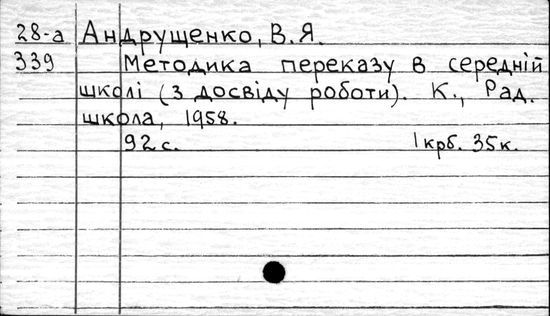 28-а Андрущенко, В.Я.
339 Методика переказу в середній
школі (з досвіду роботи). К., Рад.
школа, 1958.
92 с. 1 крб. 35к.